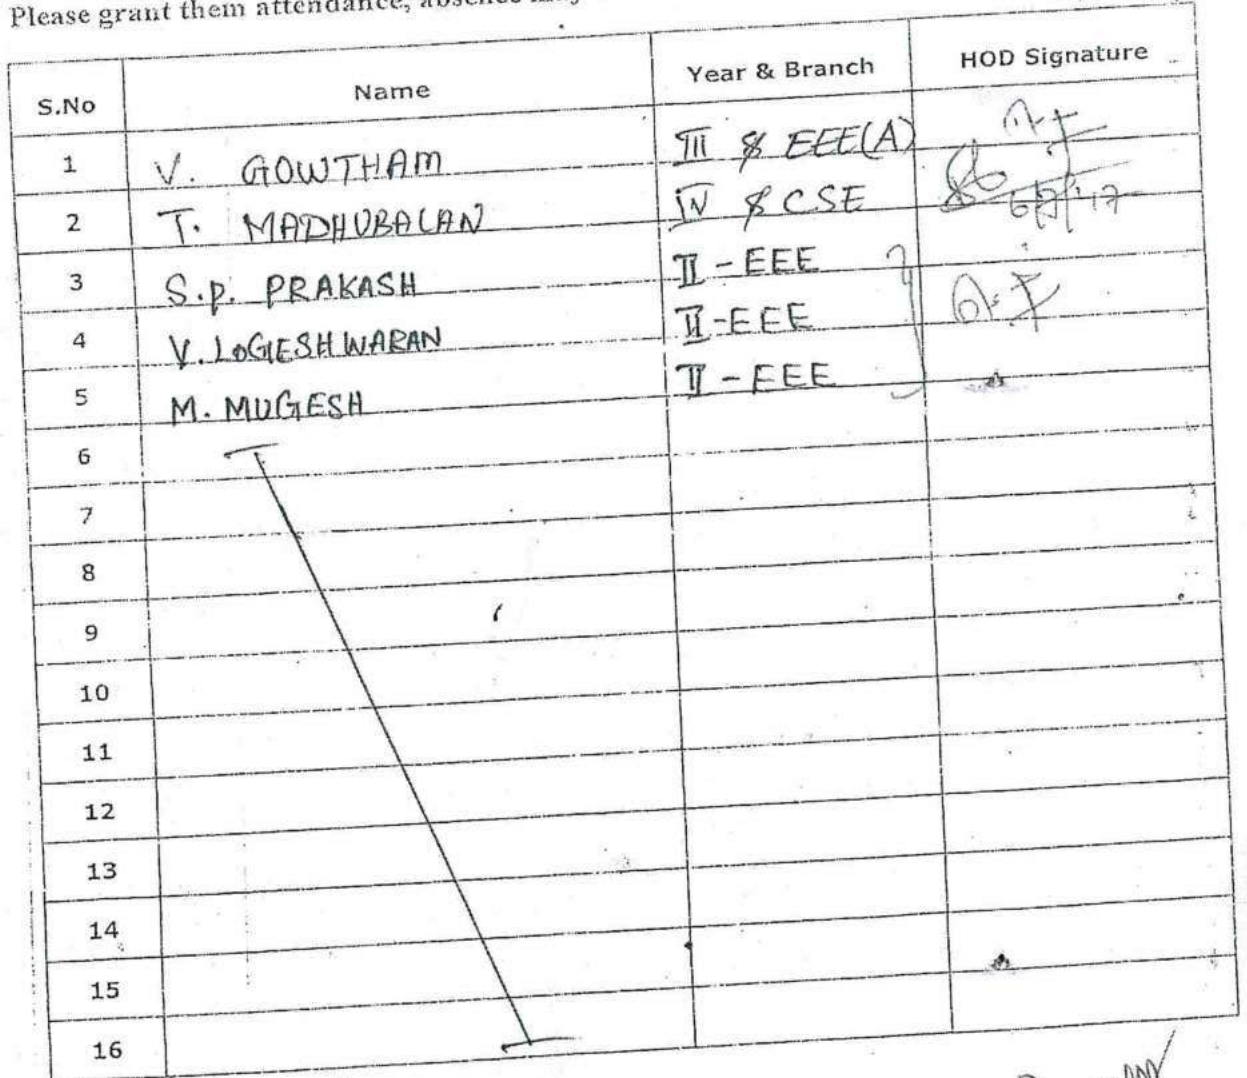 Please grant them attendance,
S.No Name Year & Branch HOD Signature
1 V. GOWTHAM III & EEE(A)
2 T. MADHUBALAN IV & CSE
3 S.P. PRAKASH II - EEE
4 V. LOGESHWARAN II - EEE
5 M. MUGESH II - EEE
6
7
8
9
10
11
12
13
14
15
16